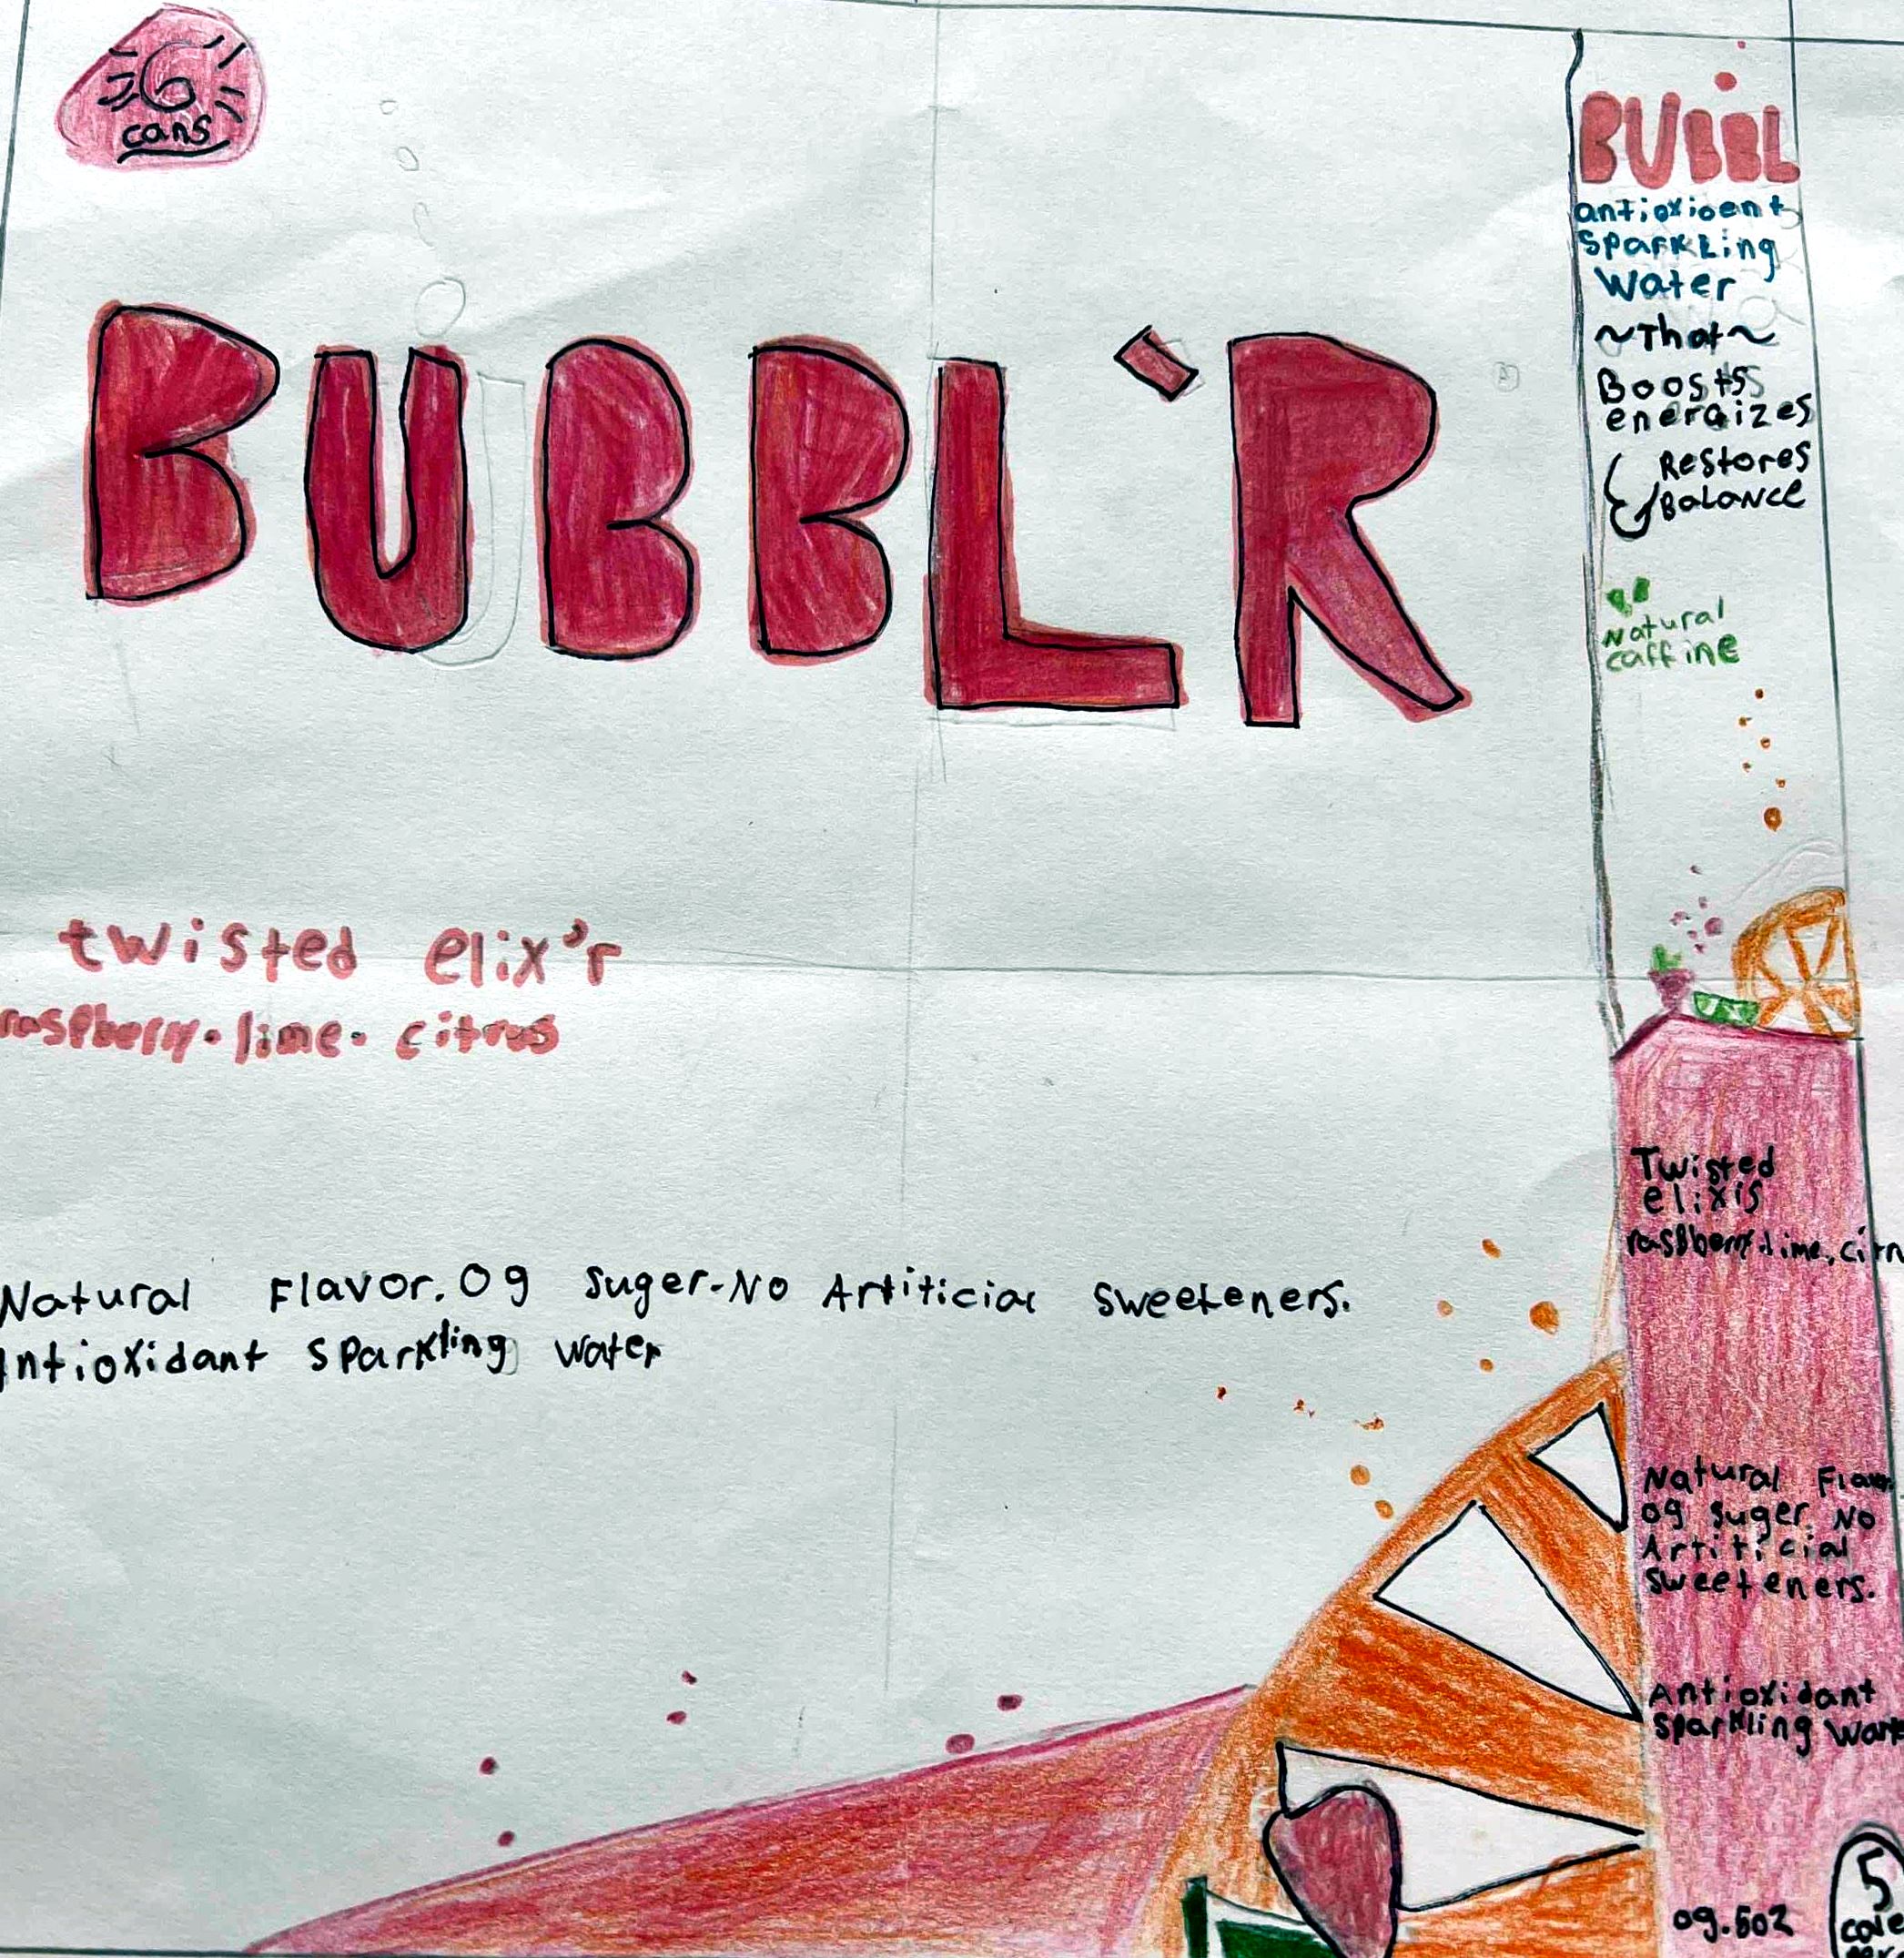 6
cans
BUBBL'R
twisted elix'r
raspberry • lime • citrus
Natural Flavor. 0g Suger-No Artiticial Sweeteners.
Antioxidant Sparkling Water
BUBBL
antioxioent
Sparkling
Water
~That~
Boosts
energizes
& Restores
Balance
Natural
caffine
Twisted
elixis
raspberry.lime.citr
Natural Flavor
0g Suger. No
Artiticial
Sweeteners.
Antioxidant
Sparkling Wat
5